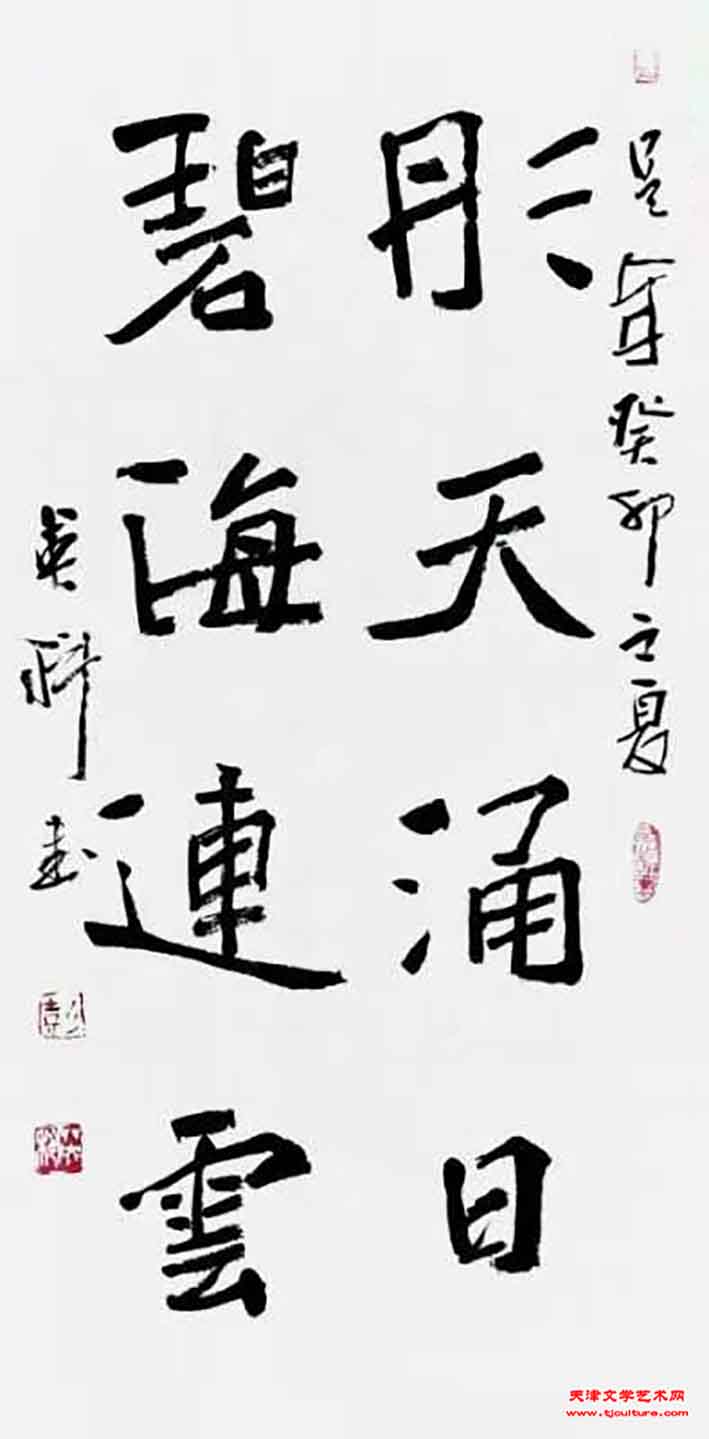 年癸卯之夏
彤天涌日
碧海連雲
英科書
天津文学艺术网
www.tjculture.com